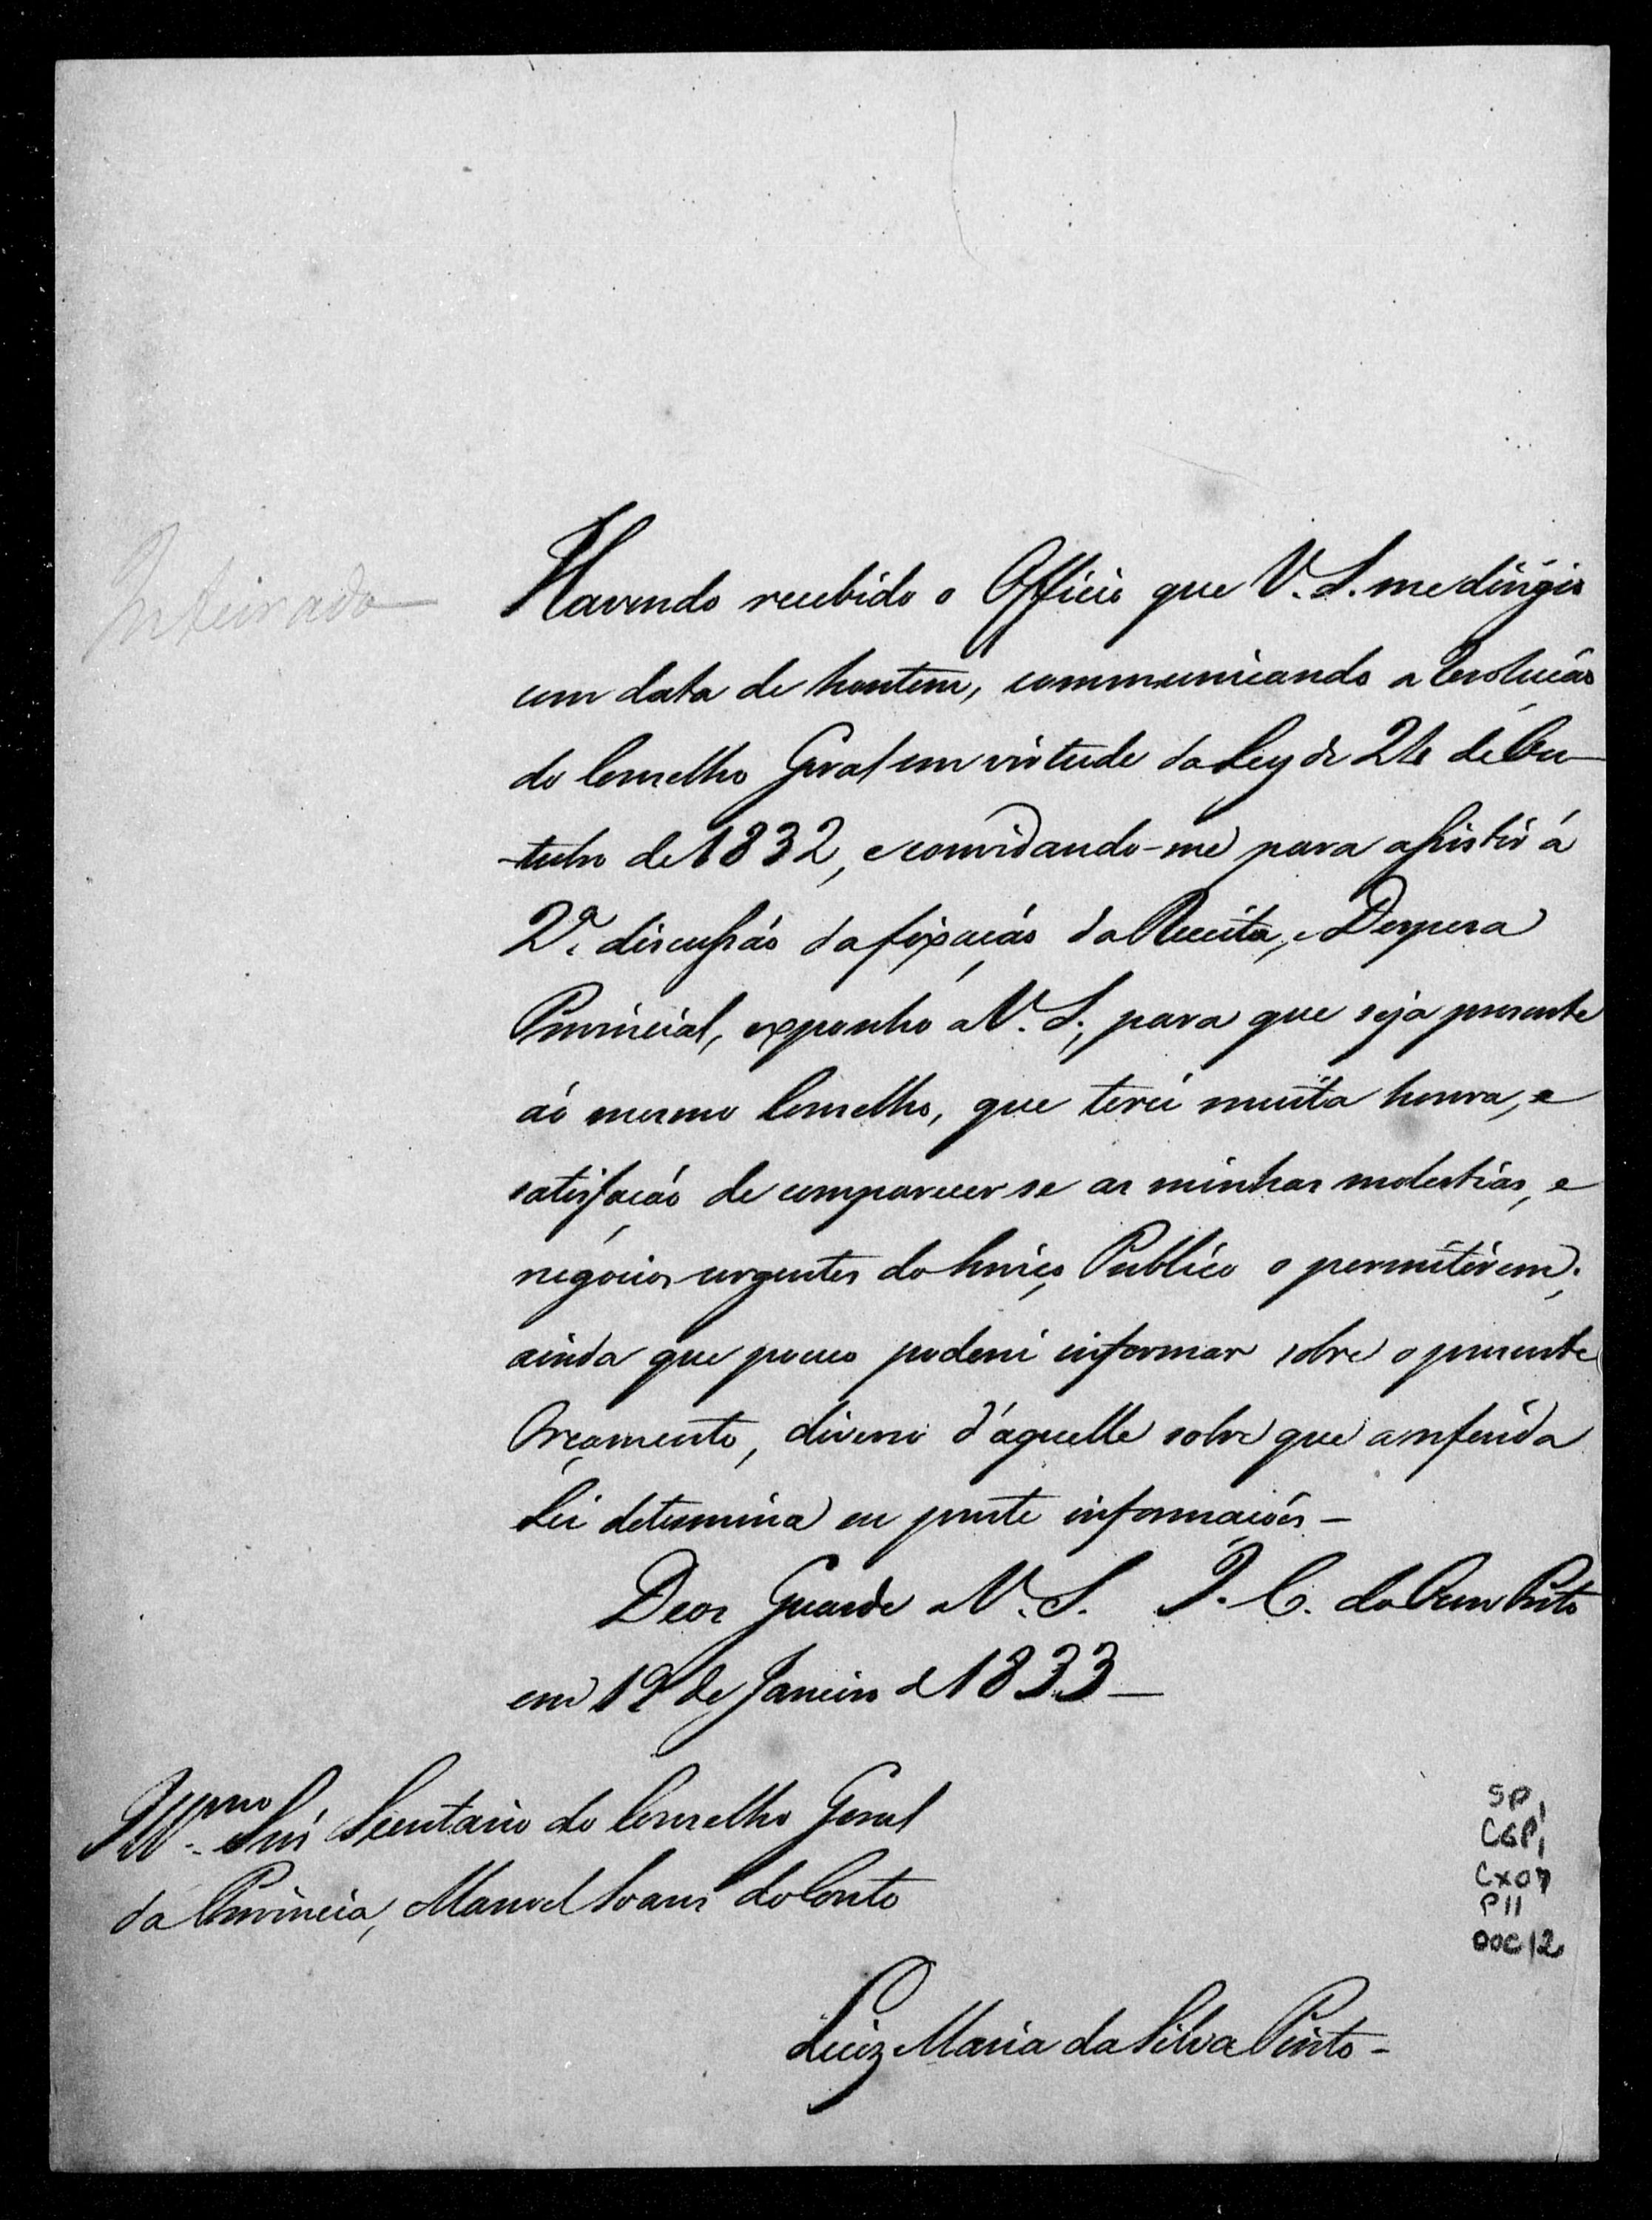 Inteirado
Havendo recebido o Officio que V. S. me dirigio
com data de hontem, communicando a Resolução
do Conselho Geral em virtude da Ley de 24 de Ou-
-tubro de 1832, e convidando-me para assistir á
2ª discussão da fixação da Receita, e Despesa
Provincial, exponho a V. S., para que seja presente
áo mesmo Conselho, que terei muita honra, e
satisfação de comparecer se as minhas molestias, e
negocios urgentes do Serviço Publico o permitirem;
ainda que pouco poderei informar sobre o presente
Orçamento, diverso d'áquelle sobre que a referida
Lei determina eu preste informações -
Deos Guarde a V. S. I. C. do Ouro Preto
em 19 de Janeiro de 1833 -
Illmo Snr Secretario do Conselho Geral
da Provincia, Manoel Soares do Couto
Luiz Maria da Silva Pinto -
SP,
CGP,
Cx07
P11
DOC 12